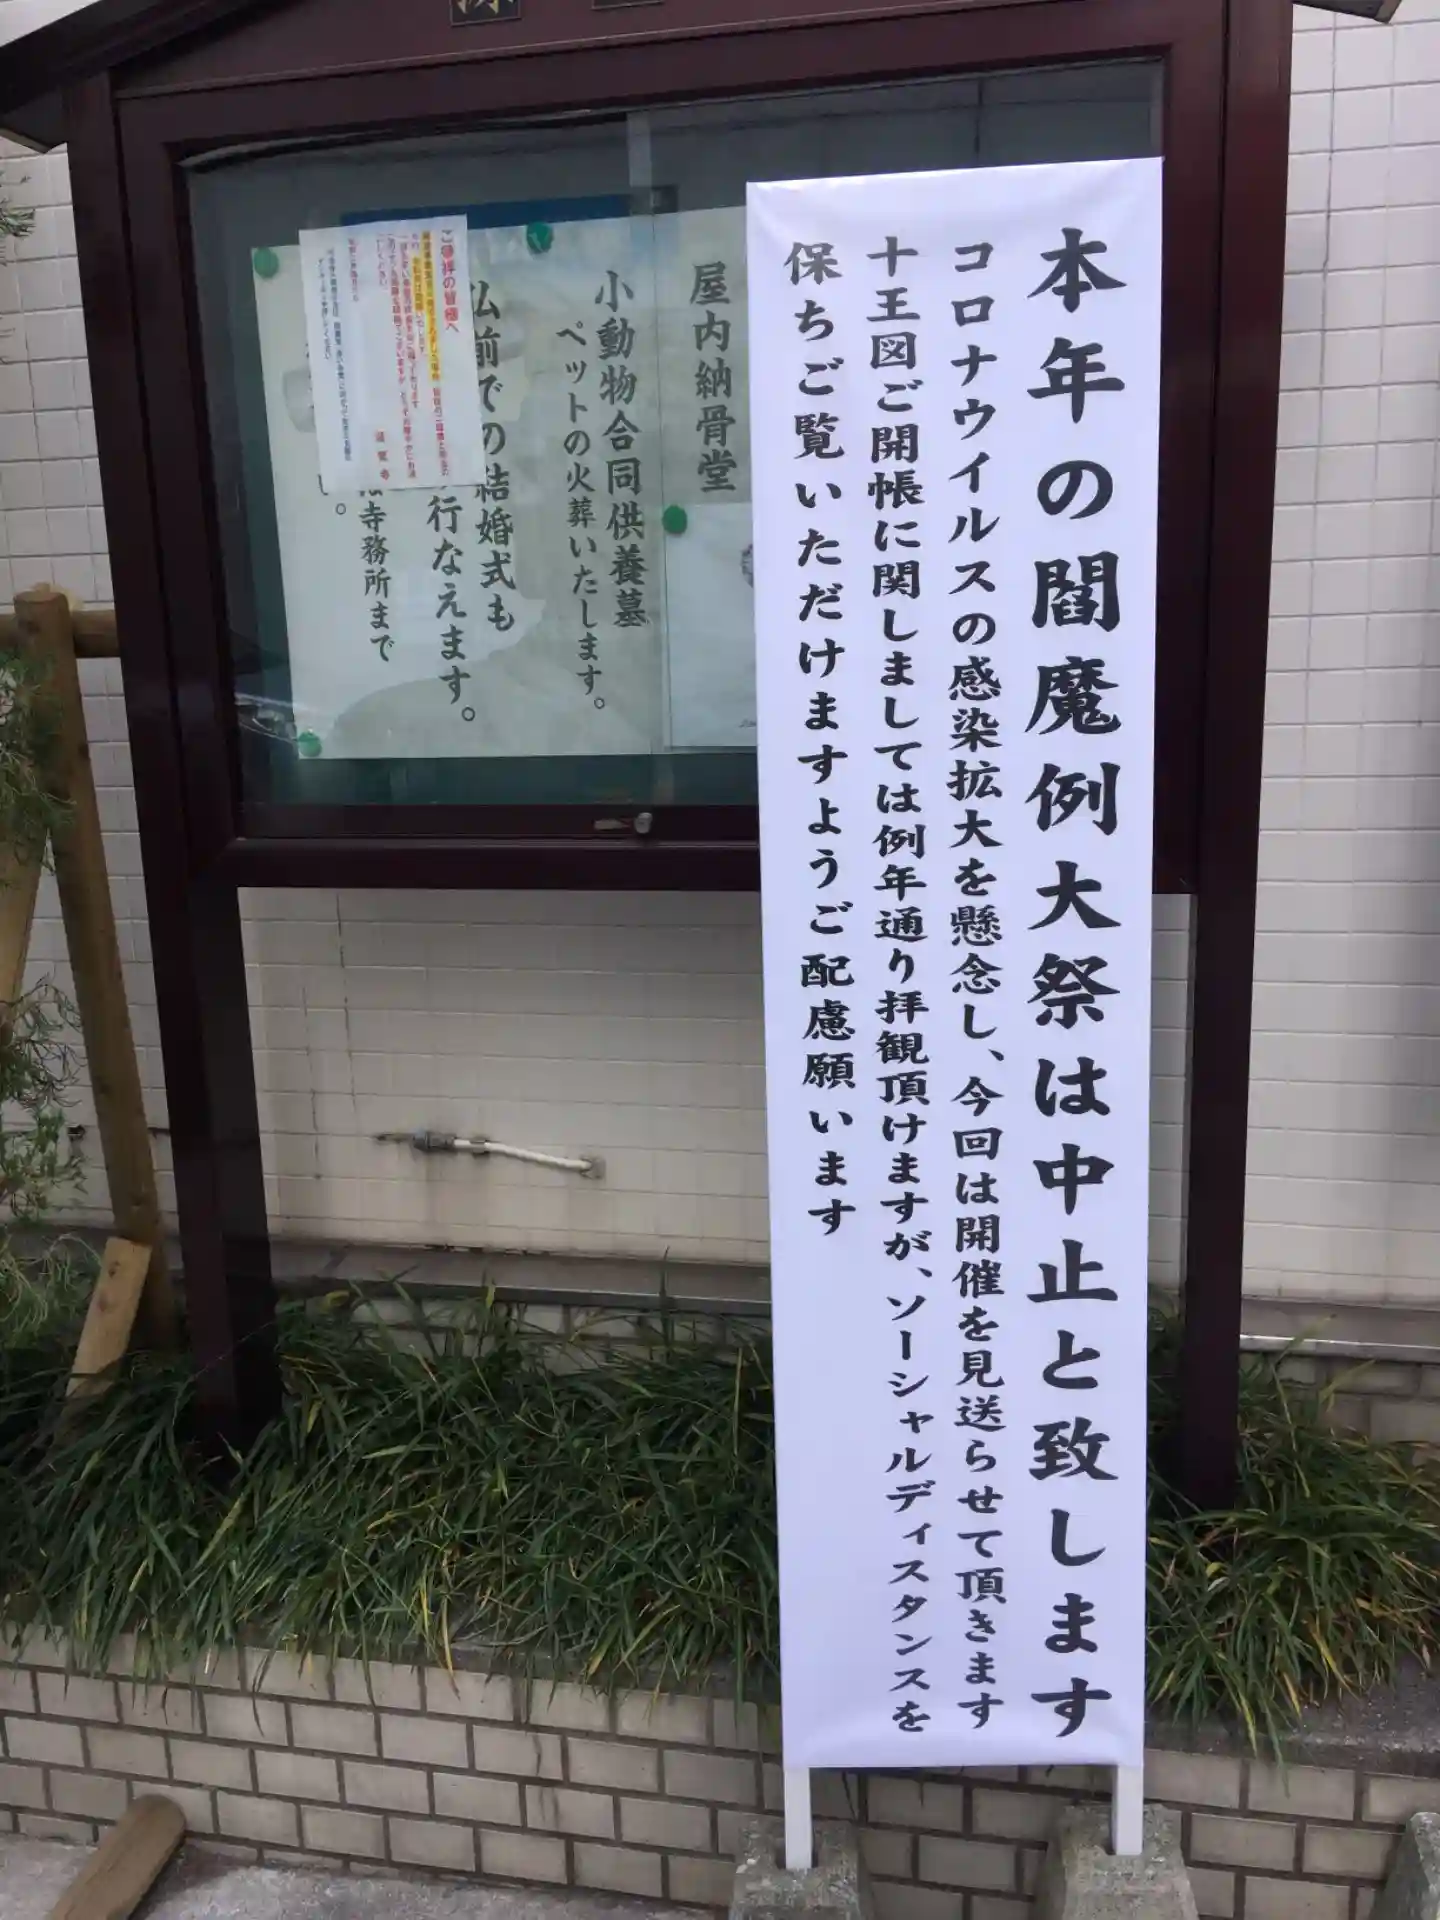 本年の閻魔例大祭は中止と致します
コロナウイルスの感染拡大を懸念し、今回は開催を見送らせて頂きます
十王図ご開帳に関しましては例年通り拝観頂けますが、ソーシャルディスタンスを
保ちご覧いただけますようご配慮願います
屋内納骨堂
小動物合同供養墓
ペットの火葬いたします。
仏前での結婚式も
行なえます。
寺務所まで
。
ご参拝の皆様へ